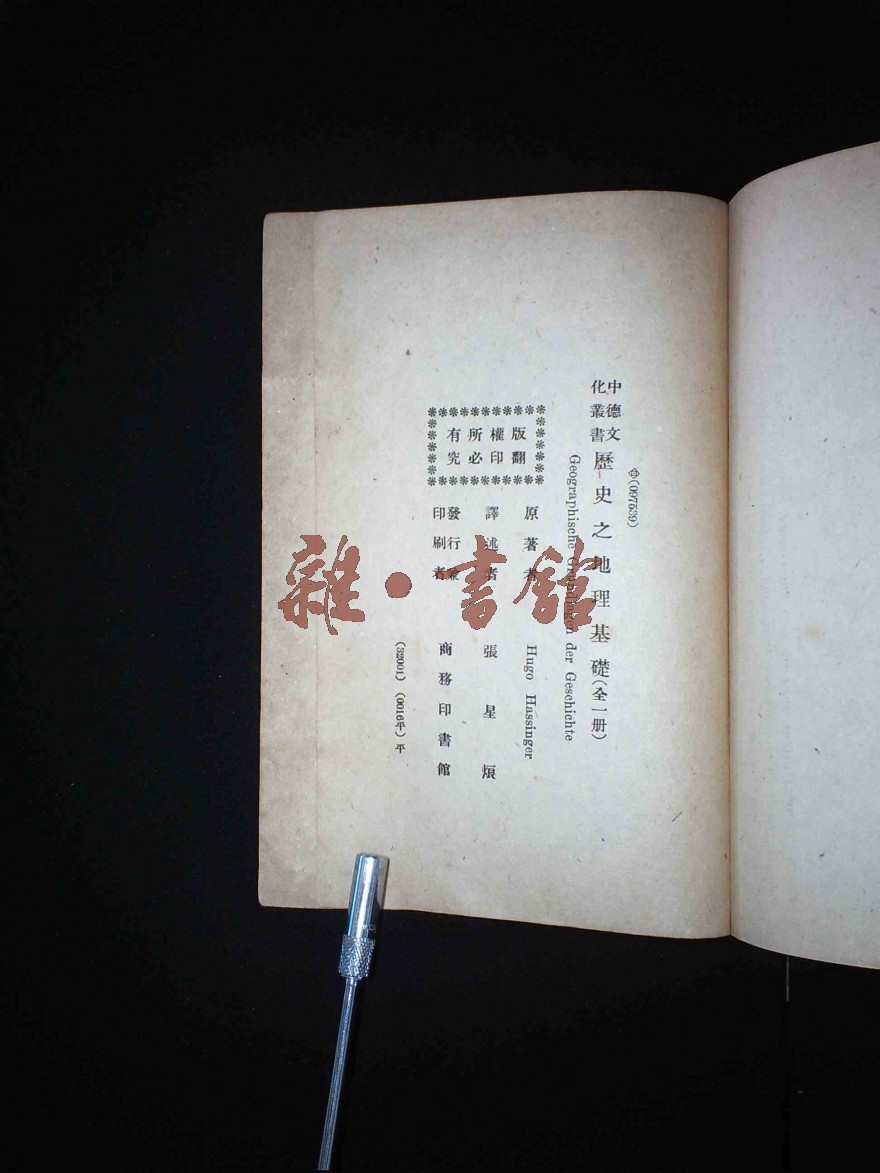 ⊕(097539)
中德文化叢書
歷史之地理基礎(全一册)
Geographische Grundlagen der Geschichte
版權所有
翻印必究
原著者 Hugo Hassinger
譯述者 張星烺
發行兼印刷者 商務印書館
(32001)(0016平)平
雜·書館